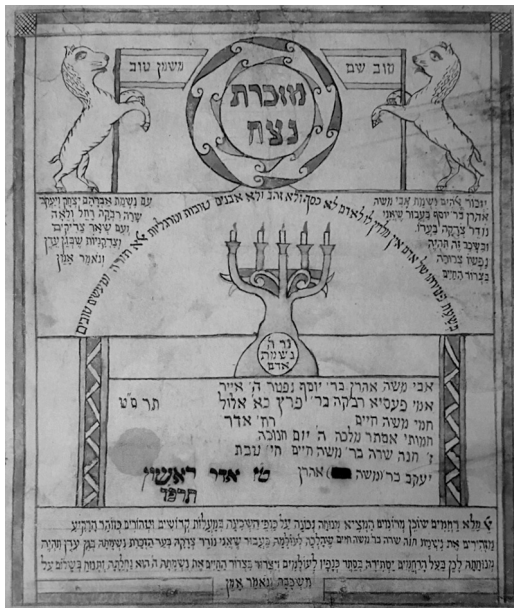 טוב שם
משמן טוב
מזכרת
נצח
יזכור אלהים נשמת אבי משה
אהרן בר יוסף בעבור שאני
נודר צדקה בעדו.
ובשכר זה תהיה
נפשו צרורה
בצרור החיים
עם נשמת אברהם יצחק ויעקב
שרה רבקה רחל ולאה
ועם שאר צדיקים
וצדקניות שבגן עדן
ונאמר אמן
בשעת פטירתו של אדם אין מלוין לו לאדם לא כסף ולא זהב ולא אבנים טובות ומרגליות אלא תורה ומעשים טובים
נר ה'
נשמת
אדם
אבי משה אהרן בר' יוסף נפטר ה' אייר
אמי פעסיא רבקה בר' פרץ כא' אלול תר ס"ט
חמי משה חיים רח' אדר
חמותי אסתר מלכה ה' יום חנוכה
ז' חנה שרה בר' משה חיים חי' טבת
יעקב בר (משה) אהרן ט"ו אדר ראשון
תרפד
מלא רחמים שוכן מרומים המציא מנוחה נכונה על כנפי השכינה במעלות קדושים וטהורים כזוהר הרקיע
מזהירים את נשמת חנה שרה בר' משה חיים שהלכה לעולמה בעבור שאני נודר צדקה בעד הזכרת נשמתה בגן עדן תהיה
מנוחתה לכן בעל הרחמים יסתירה בסתר כנפיו לעולמים ויצרור בצרור החיים את נשמתה ה' הוא נחלתה ותנוח בשלום על
משכבה ונאמר אמן